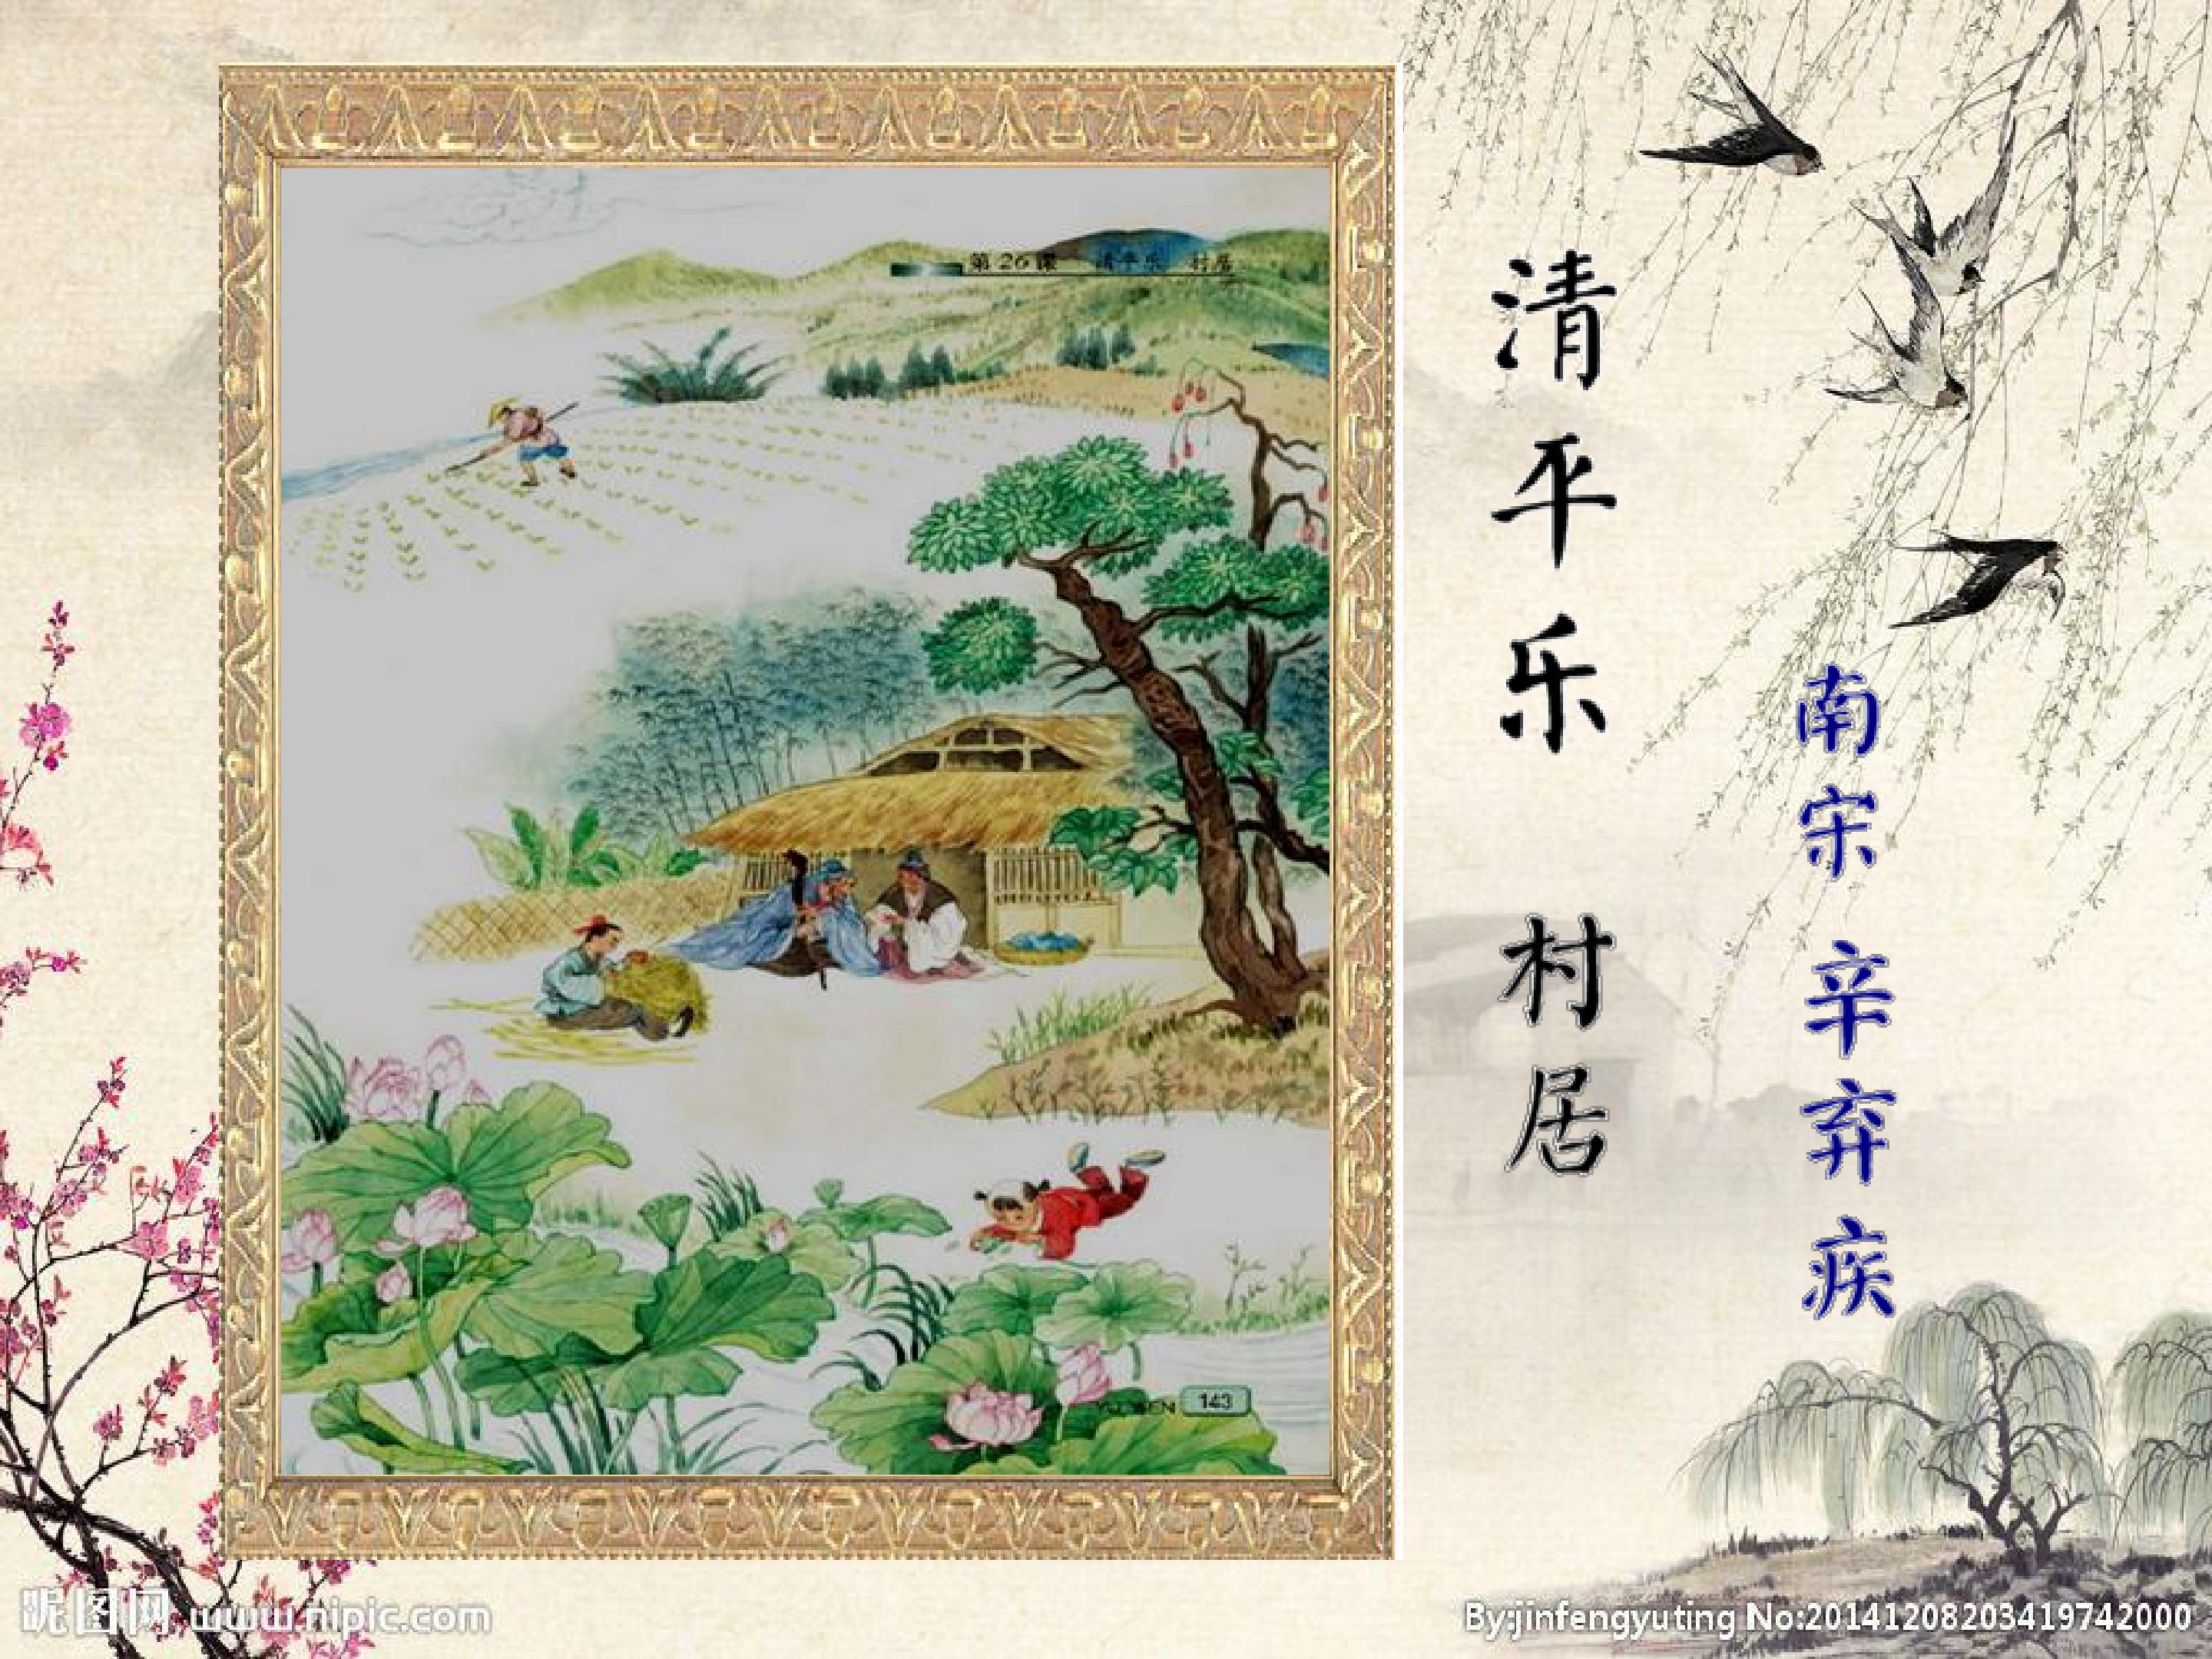 第26课 清平乐 村居
清平乐 村居
南宋 辛弃疾
YU WEN 143
昵图网 www.nipic.com
By:jinfengyuting No:20141208203419742000